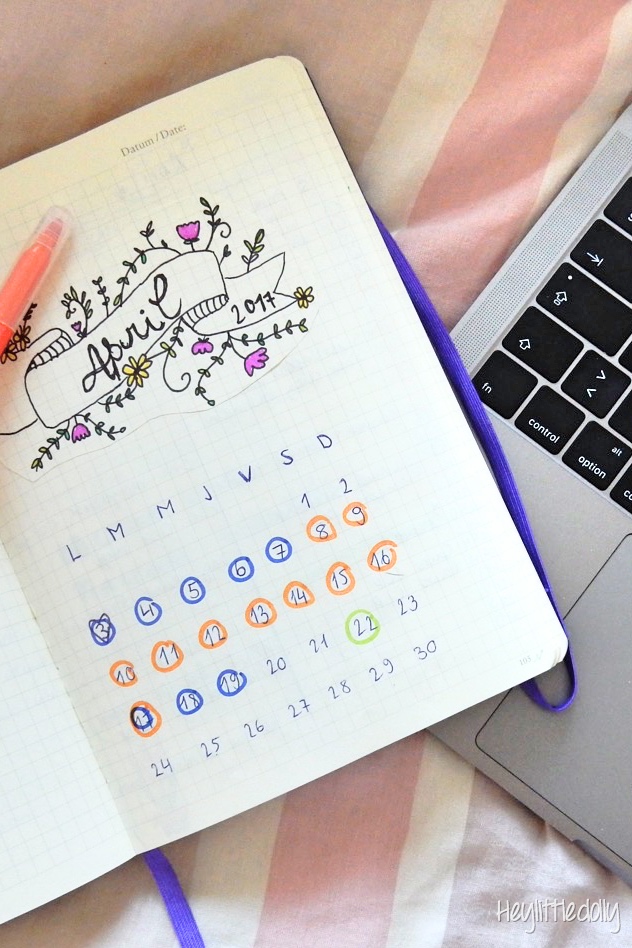 Datum/Date:
April
2017
L M M J V S D
1 2
3 4 5 6 7 8 9
10 11 12 13 14 15 16
17 18 19 20 21 22 23
24 25 26 27 28 29 30
fn
control
alt
option
Heylittledolly